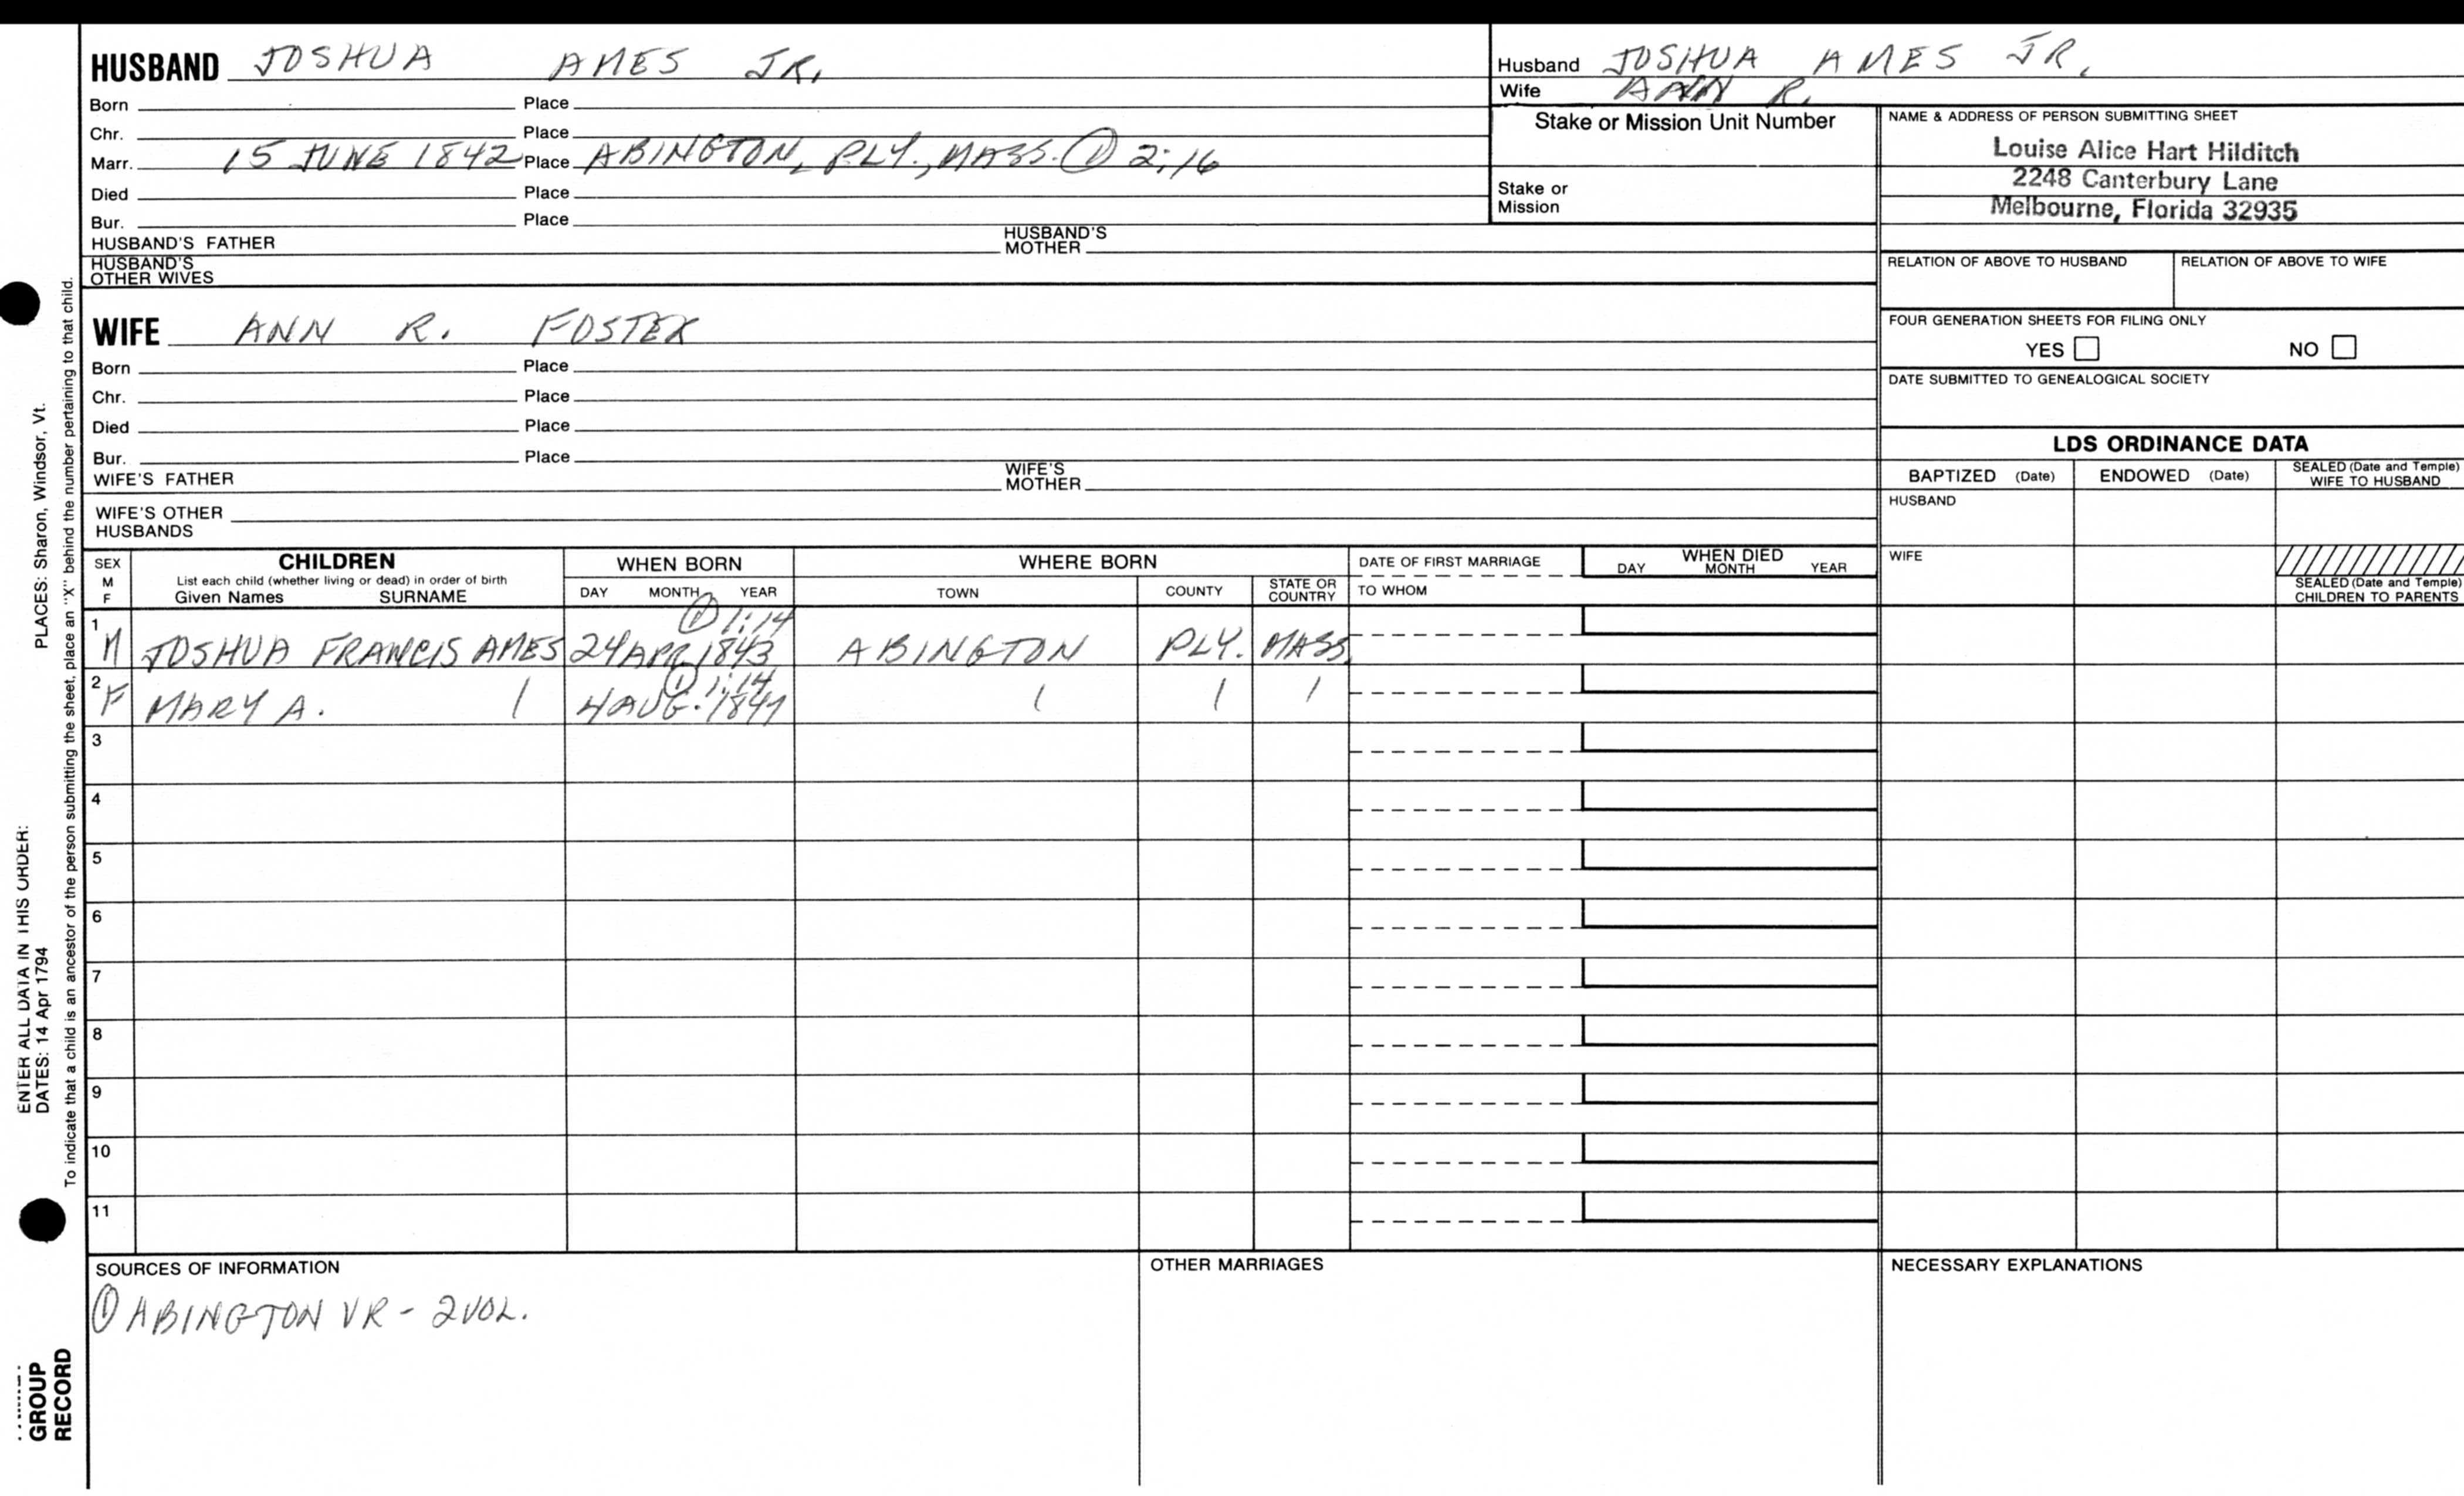 HUSBAND JOSHUA AMES JR.
Born Place
Chr. Place
Marr. 15 JUNE 1842 Place ABINGTON, PLY., MASS. ① 2:16
Died Place
Bur. Place
HUSBAND'S FATHER HUSBAND'S MOTHER
HUSBAND'S OTHER WIVES
Husband JOSHUA AMES JR.
Wife ANN R.
Stake or Mission Unit Number
Stake or Mission
NAME & ADDRESS OF PERSON SUBMITTING SHEET
Louise Alice Hart Hilditch
2248 Canterbury Lane
Melbourne, Florida 32935
RELATION OF ABOVE TO HUSBAND RELATION OF ABOVE TO WIFE
FOUR GENERATION SHEETS FOR FILING ONLY
YES NO
DATE SUBMITTED TO GENEALOGICAL SOCIETY
WIFE ANN R. FOSTER
Born Place
Chr. Place
Died Place
Bur. Place
WIFE'S FATHER WIFE'S MOTHER
WIFE'S OTHER HUSBANDS
LDS ORDINANCE DATA
BAPTIZED (Date) ENDOWED (Date) SEALED (Date and Temple) WIFE TO HUSBAND
HUSBAND
WIFE
SEALED (Date and Temple) CHILDREN TO PARENTS
SEX M F
CHILDREN
List each child (whether living or dead) in order of birth
Given Names SURNAME
WHEN BORN
DAY MONTH YEAR
WHERE BORN
TOWN COUNTY STATE OR COUNTRY
DATE OF FIRST MARRIAGE
TO WHOM
WHEN DIED
DAY MONTH YEAR
① 1:14
1 M JOSHUA FRANCIS AMES 24 APR 1843 ABINGTON PLY. MASS.
① 1:14
2 F MARY A. 4 AUG. 1847
3
4
5
6
7
8
9
10
11
SOURCES OF INFORMATION
① ABINGTON VR - 2 VOL.
OTHER MARRIAGES
NECESSARY EXPLANATIONS
ENTER ALL DATA IN THIS ORDER:
DATES: 14 Apr 1794 PLACES: Sharon, Windsor, Vt.
To indicate that a child is an ancestor of the person submitting the sheet, place an "X" behind the number pertaining to that child.
GROUP
RECORD